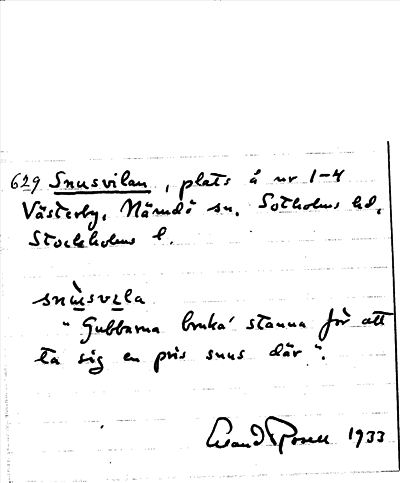 629 Snusvilan, plats å nr 1-4
Västerby, Nämdö sn. Sotholms hd,
Stockholms l.
snùsvɩla
"Gubbarna bruka' stanna för att
ta sig en pris snus där".
1933